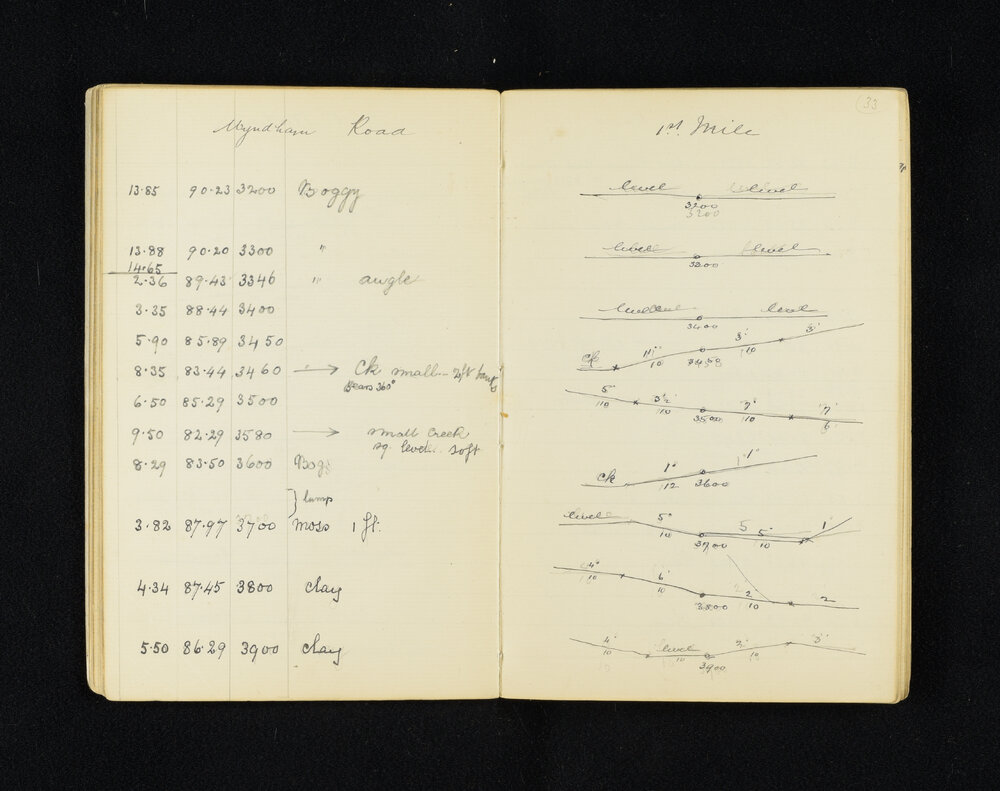 Wyndham Road
13.85 90.23 3200 Boggy
13.88 90.20 3300 "
14.65
2.36 89.43 3346 " angle
3.35 88.44 3400
5.90 85.89 3450
8.35 83.44 3460 → Ck small – 2ft banks
Bears 360°
6.50 85.29 3500
9.50 82.29 3580 → small creek
sq level. soft
8.29 83.50 3600 Bogs
} lump
3.82 87.97 3700 moss 1 ft.
4.34 87.45 3800 clay
5.50 86.29 3900 clay
33
1st Mile
level level
3200
3200
level level
3200
level level
3400
ck 11° 3° 3°
10 3458 10
5° 3½° 7° 7°
10 10 3500 10 6
ck 1° 1°
12 3600
level 5° 5 5° 1°
10 3700 10
4° 6° 2° 2
10 10 3800 10
4° level 2° 3°
10 10 3900 10